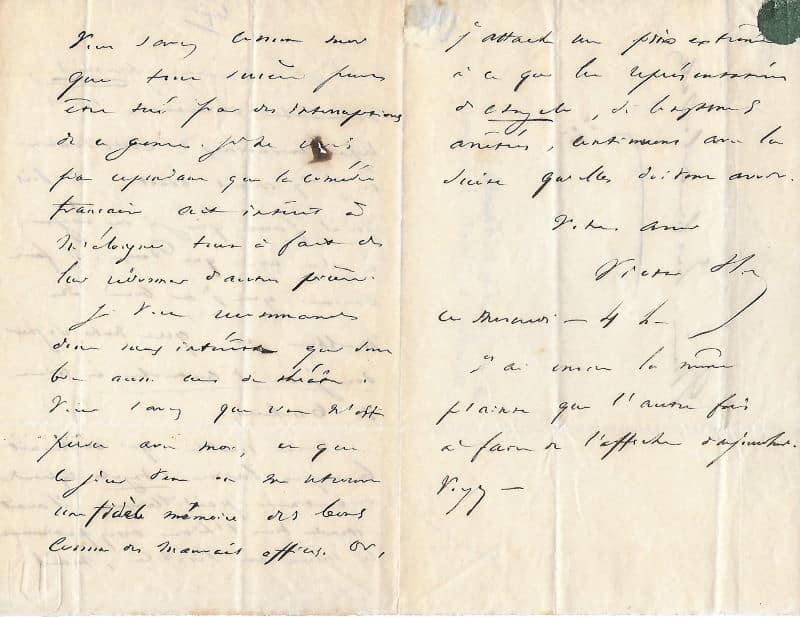 Vous savez comme moi
que tout succès peut
être tué par des interruptions
de ce genre. Je ne crois
pas cependant que la comédie
française ait intérêt à
m'éloigner tout à fait de
leur redonner d'autres pièces.
Je vous recommande
donc mes intérêts qui sont
bien aussi ceux du théâtre.
Vous savez que rien n'est
perdu avec moi, et que
le jour venu on me retrouve
une fidèle mémoire des bons
comme des mauvais offices. Or,
j'attache un prix extrême
à ce que les représentations
d'Angelo, 
arrêtées, continuent avec la
suite qu'elles doivent avoir.
Votre ami
Victor H
ce mercredi — 4 h —
J'ai encore la même
plainte que l'autre fois
à faire de l'affiche d'aujourd'hui.
Voyez —